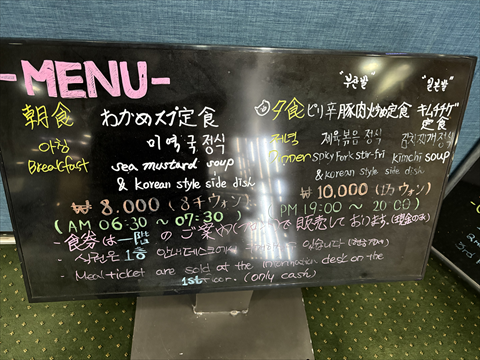 -MENU-
"부른밥" "일본밥"
朝食 わかめスープ定食
夕食 ピリ辛豚肉炒め定食 キムチチゲ定食
아침 미역국정식
저녁 제육볶음 정식 김치찌개정식
Breakfast sea mustard soup & korean style side dish
Dinner spicy Pork stir-fri kimchi soup & korean style side dish
₩ 8.000 (8千ウォン)
₩ 10.000 (1万ウォン)
(AM 06:30 ~ 07:30)
(PM 19:00 ~ 20:00)
- 食券は一階のご案内 で販売しております。(現金のみ)
식권은 1층 안내데스크에서 있습니다
- Meal ticket are sold at the information desk on the 1st (only cash)